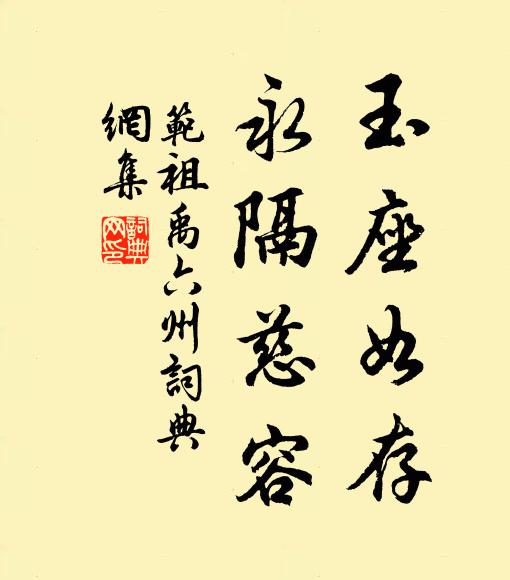 玉座如存
永隔慈容
範祖禹六州詞典
網集
詞典
网印